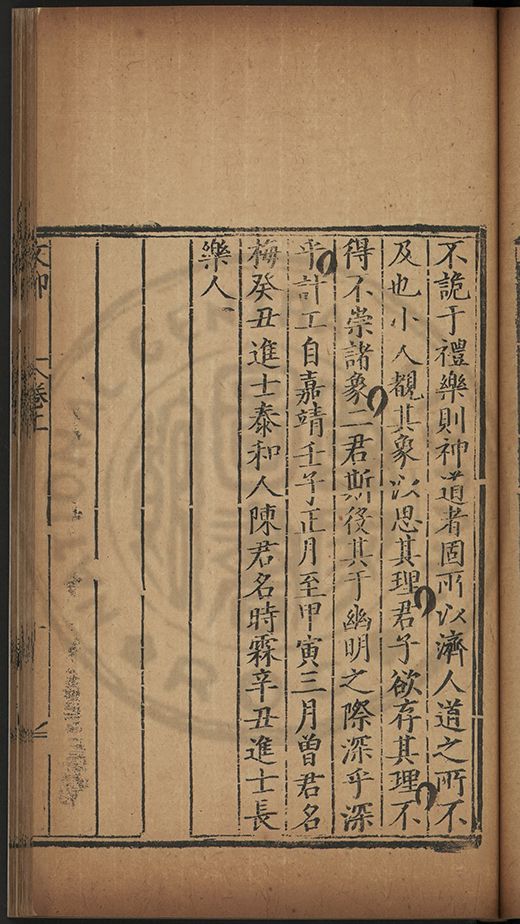 不詭于禮樂則神道者固所以濟人道之所不
及也小人覩其象以思其理君子欲存其理不
得不崇諸象二君斯後其于幽明之際深乎深
乎計工自嘉靖壬子正月至甲寅三月曾君名
梅癸丑進士泰和人陳君名時霖辛丑進士長
樂人